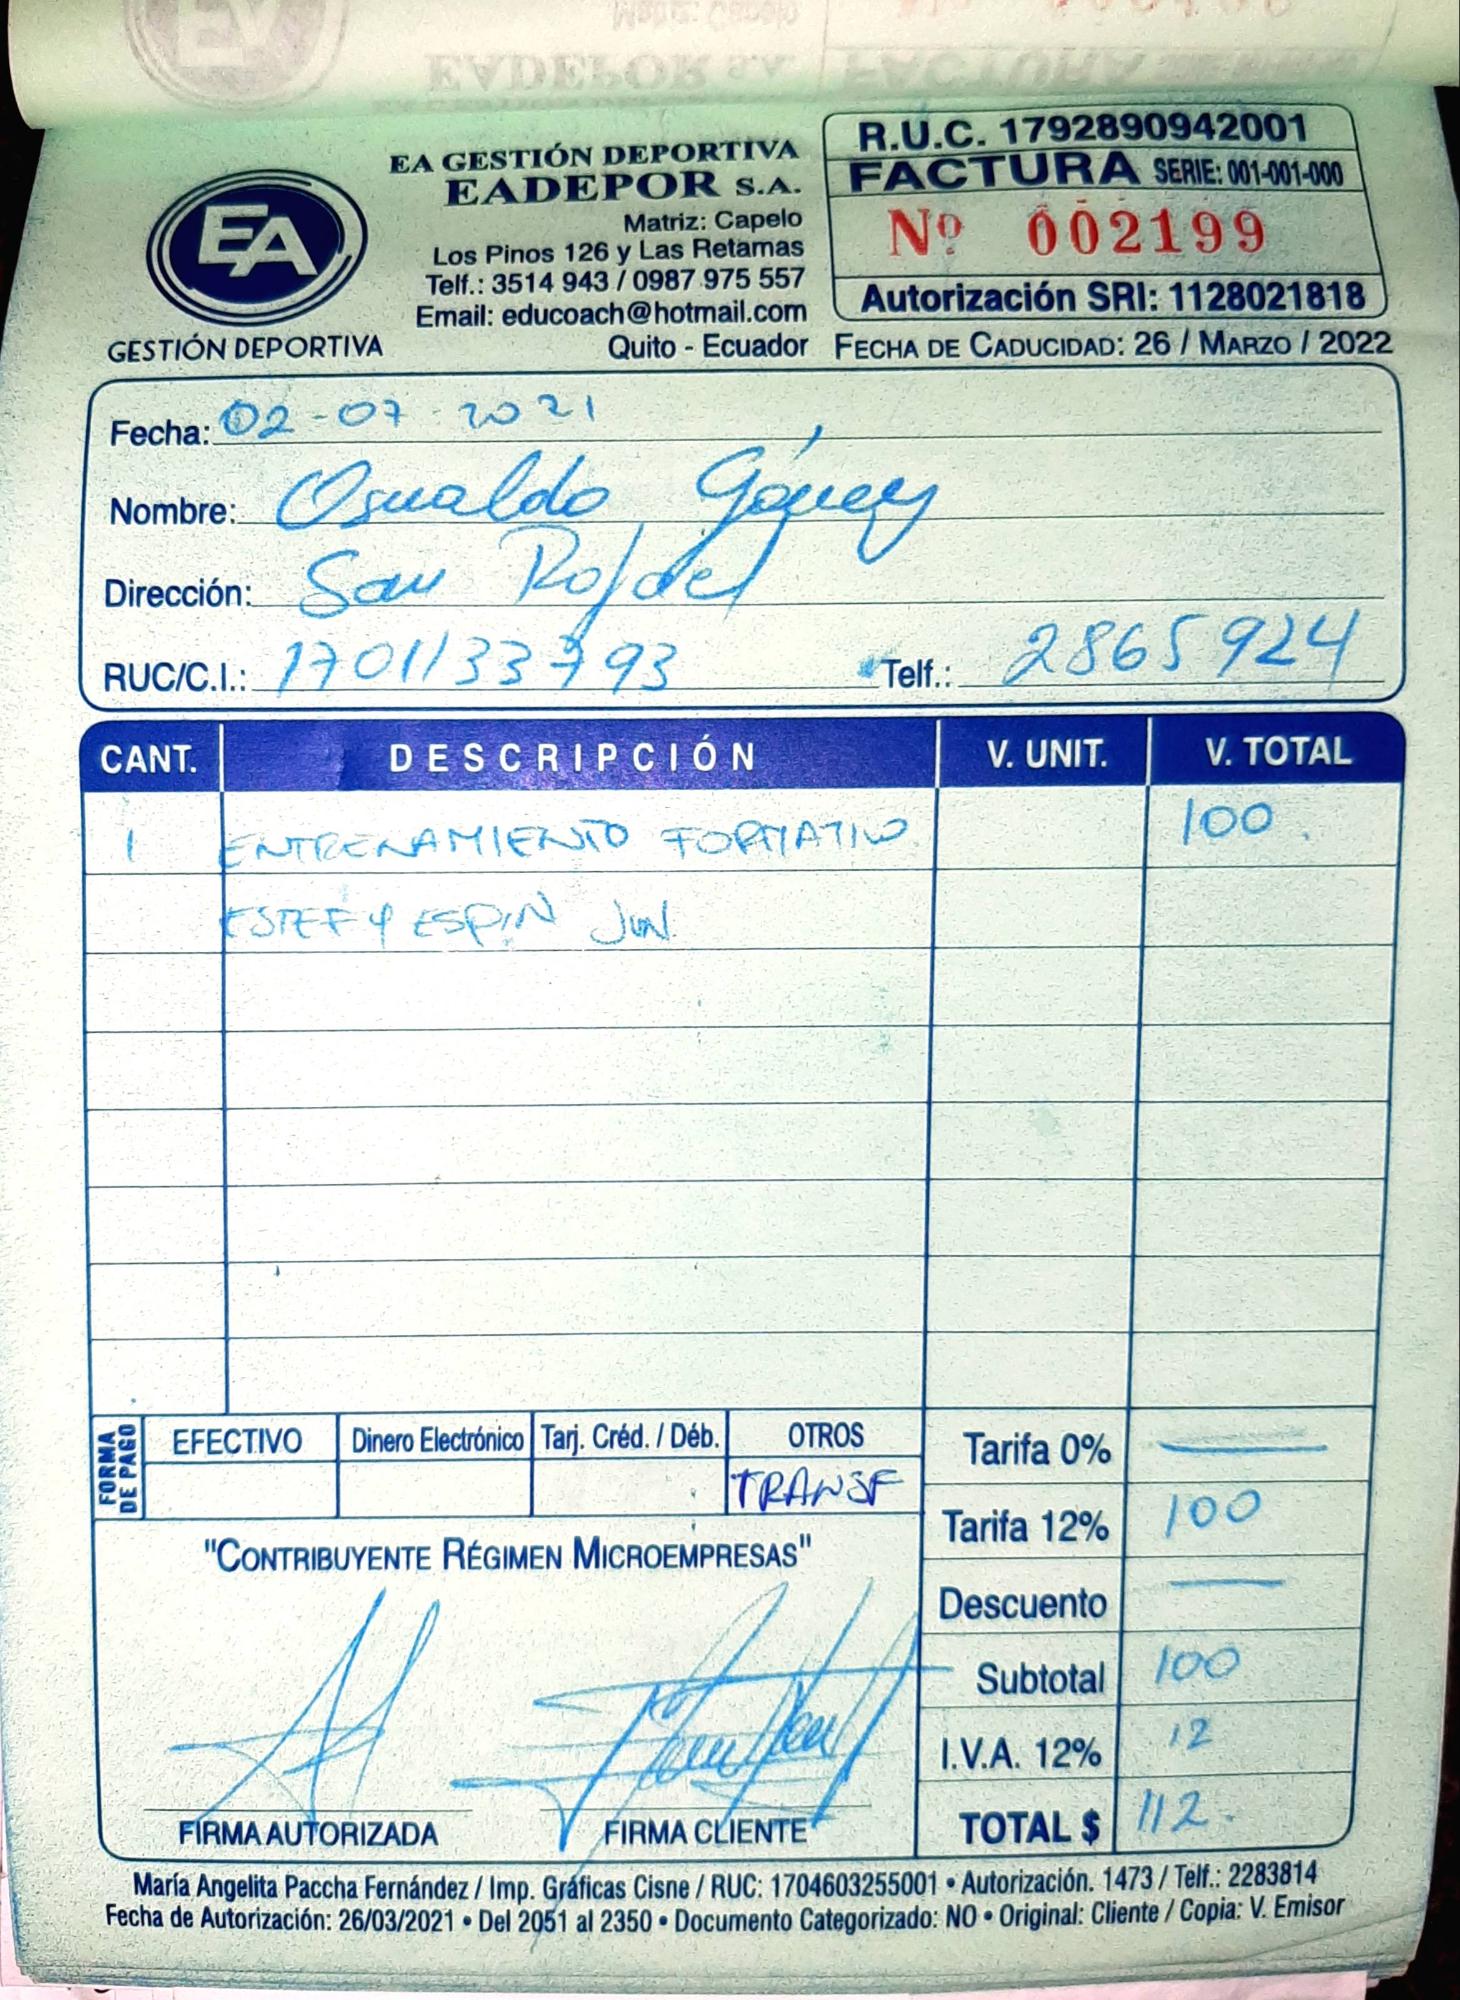 EA GESTIÓN DEPORTIVA
EADEPOR S.A.
Matriz: Capelo
Los Pinos 126 y Las Retamas
Telf.: 3514 943 / 0987 975 557
Email: educoach@hotmail.com
Quito - Ecuador
EA
GESTIÓN DEPORTIVA
R.U.C. 1792890942001
FACTURA SERIE: 001-001-000
Nº 002199
Autorización SRI: 1128021818
FECHA DE CADUCIDAD: 26 / MARZO / 2022
Fecha: 02-07-2021
Nombre: Oswaldo
Dirección: San Rafael
RUC/C.I.: 1701133793 Telf.: 2865924
CANT. DESCRIPCIÓN V. UNIT. V. TOTAL
1 ENTRENAMIENTO FORMATIVO 100
ESTEFY ESPIN JUN
FORMA DE PAGO EFECTIVO Dinero Electrónico Tarj. Créd. / Déb. OTROS
TRANSF
Tarifa 0%
Tarifa 12% 100
Descuento
Subtotal 100
I.V.A. 12% 12
TOTAL $ 112
"CONTRIBUYENTE RÉGIMEN MICROEMPRESAS"
FIRMA AUTORIZADA FIRMA CLIENTE
María Angelita Paccha Fernández / Imp. Gráficas Cisne / RUC: 1704603255001 • Autorización. 1473 / Telf.: 2283814
Fecha de Autorización: 26/03/2021 • Del 2051 al 2350 • Documento Categorizado: NO • Original: Cliente / Copia: V. Emisor